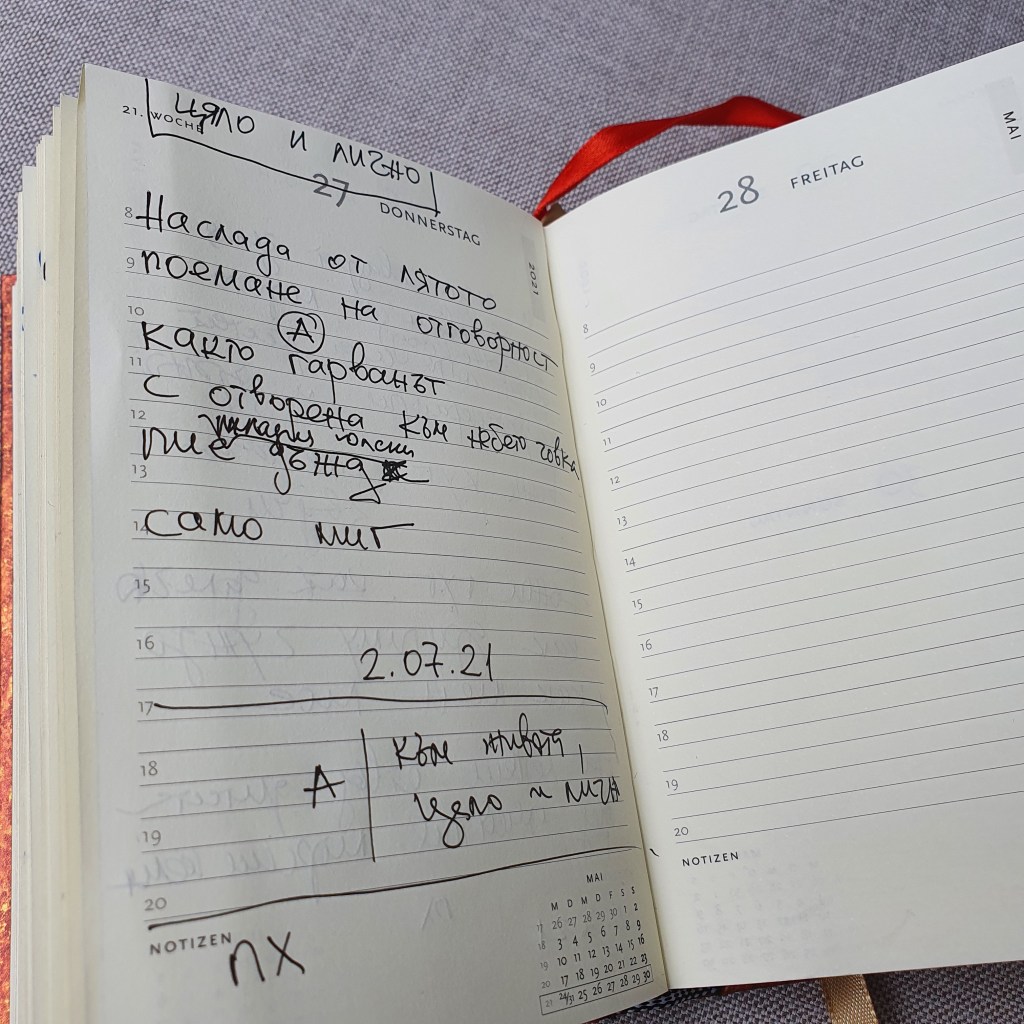 ЦЯЛО И ЛИЧНО
21. WOCHE
27 DONNERSTAG
2021
8 Наслада от лятото
9 поемане на отговорност
10 (А)
както гарванът
11 с отворена към небето човка
12
пие дъжда
13
14 само миг
15
16
2.07.21
17
18
А | към живота,
цяло и личн
19
20
NOTIZEN
ПХ
MAI
M D M D F S S
17 26 27 28 29 30 1 2
18 3 4 5 6 7 8 9
19 10 11 12 13 14 15 16
20 17 18 19 20 21 22 23
21 24/31 25 26 27 28 29 30
28 FREITAG
MAI
8
9
10
11
12
13
14
15
16
17
18
19
20
NOTIZEN